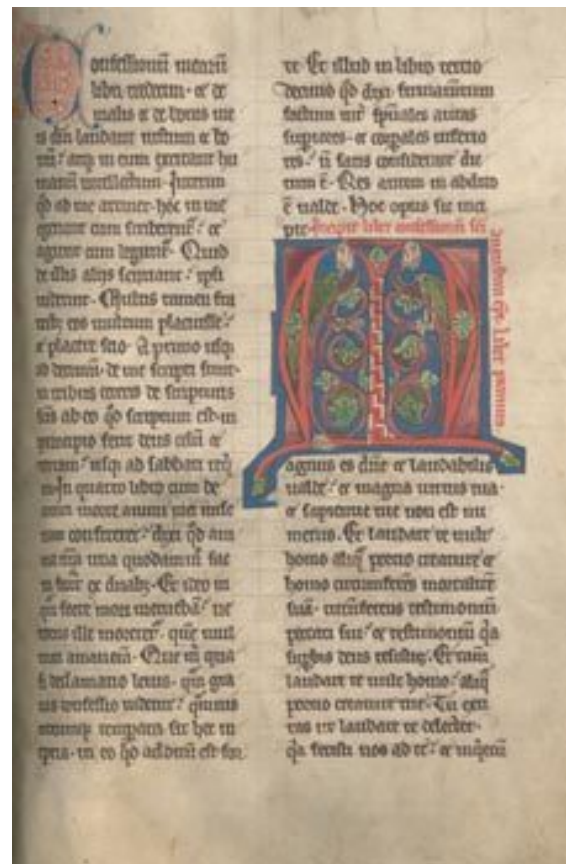 Confessionū mearū
libri tredecim · et de
malis et de bonis me
is dm̄ laudant iustum et bo
nū · atq; in eum excitant hu
manū intellectum · Interim
qd̄ ad me attinet · hoc in me
egerunt cum scriberent᷑ · et
agunt cum legunt᷑ · Quid
de illis alij sentiant · ipsi
uiderint · Multis tamen fra
trib; eos multum placuisse
et placere scio · A primo usq;
ad decimū · de me scripti sunt ·
in tribus ceteris de scripturis
scīs ab eo qd̄ scriptum est · in
principio fecit deus celū et
terram · usq; ad sabbati req̄
In quarto libro cum de
amici morte animi mei mise
riam confiterer · dixi qd̄ ani
ma nr̄a una quodammodo fac
ta fuerat ex duab; · Et ideo in
qm̄ forte mori metuebā · ne
totus ille moreret᷑ · quē mul
tum amaueram · Que m̄ qua
si declamatio leuis · qm̄ gra
uis confessio uidetur · quāuis
utcumq; temperata sit hec in
eptia · in eo qd̄ additū est for
te · Et illud in libro tertio
decimo qd̄ dixi · firmamentum
factum inter sp̄uales aquas
superiores · et corp̄ales inferio
res · n̄ satis considerate dic
tum ē · Res autem in abdito
ē ualde · Hoc opus sic inci
pit · Incipit liber confessionū scī
Augustini ep̄i · liber primus
Magnus es dn̄e et laudabilis
ualde · et magna uirtus tua ·
et sapientie tue non est nu
merus · Et laudare te uult
homo aliq̄ portio creature et
homo circumferens mortalitatē
suā · circūferens testimonium
peccati sui · et testimoniū q̄a
superbis deus resistis · Et tam̄
laudare te uult homo · aliq̄
portio creature tue · Tu exci
tas ut laudare te delectet ·
q̄a fecisti nos ad te · et inq̄etū